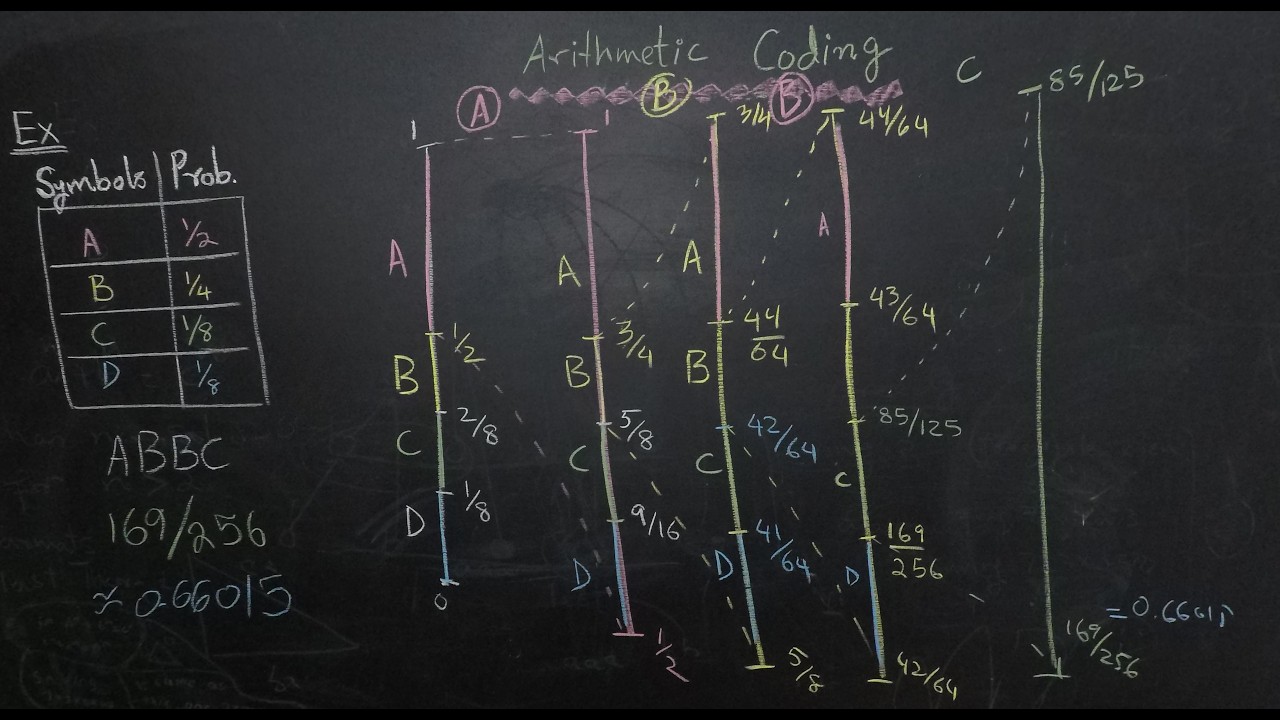 Arithmetic Coding
Ex
Symbols Prob.
A 1/2
B 1/4
C 1/8
D 1/8
ABBC
169/256
≈ 0.66015
A
B
B
C
1
A
1/2
B
2/8
C
1/8
D
0
1
A
3/4
B
5/8
C
9/16
D
1/2
3/4
A
44/64
B
42/64
C
41/64
D
5/8
44/64
A
43/64
85/125
C
169/256
D
42/64
85/125
169/256